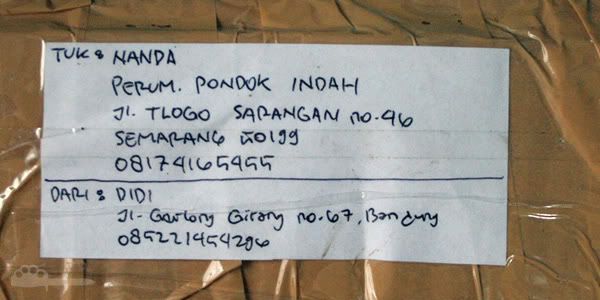 TUK : NANDA
PERUM. PONDOK INDAH
Jl. TLOGO SARANGAN no. 46
SEMARANG 50199
08174165455
DARI : DIDI
Jl. Girang no. 67, Bandung
085221454296